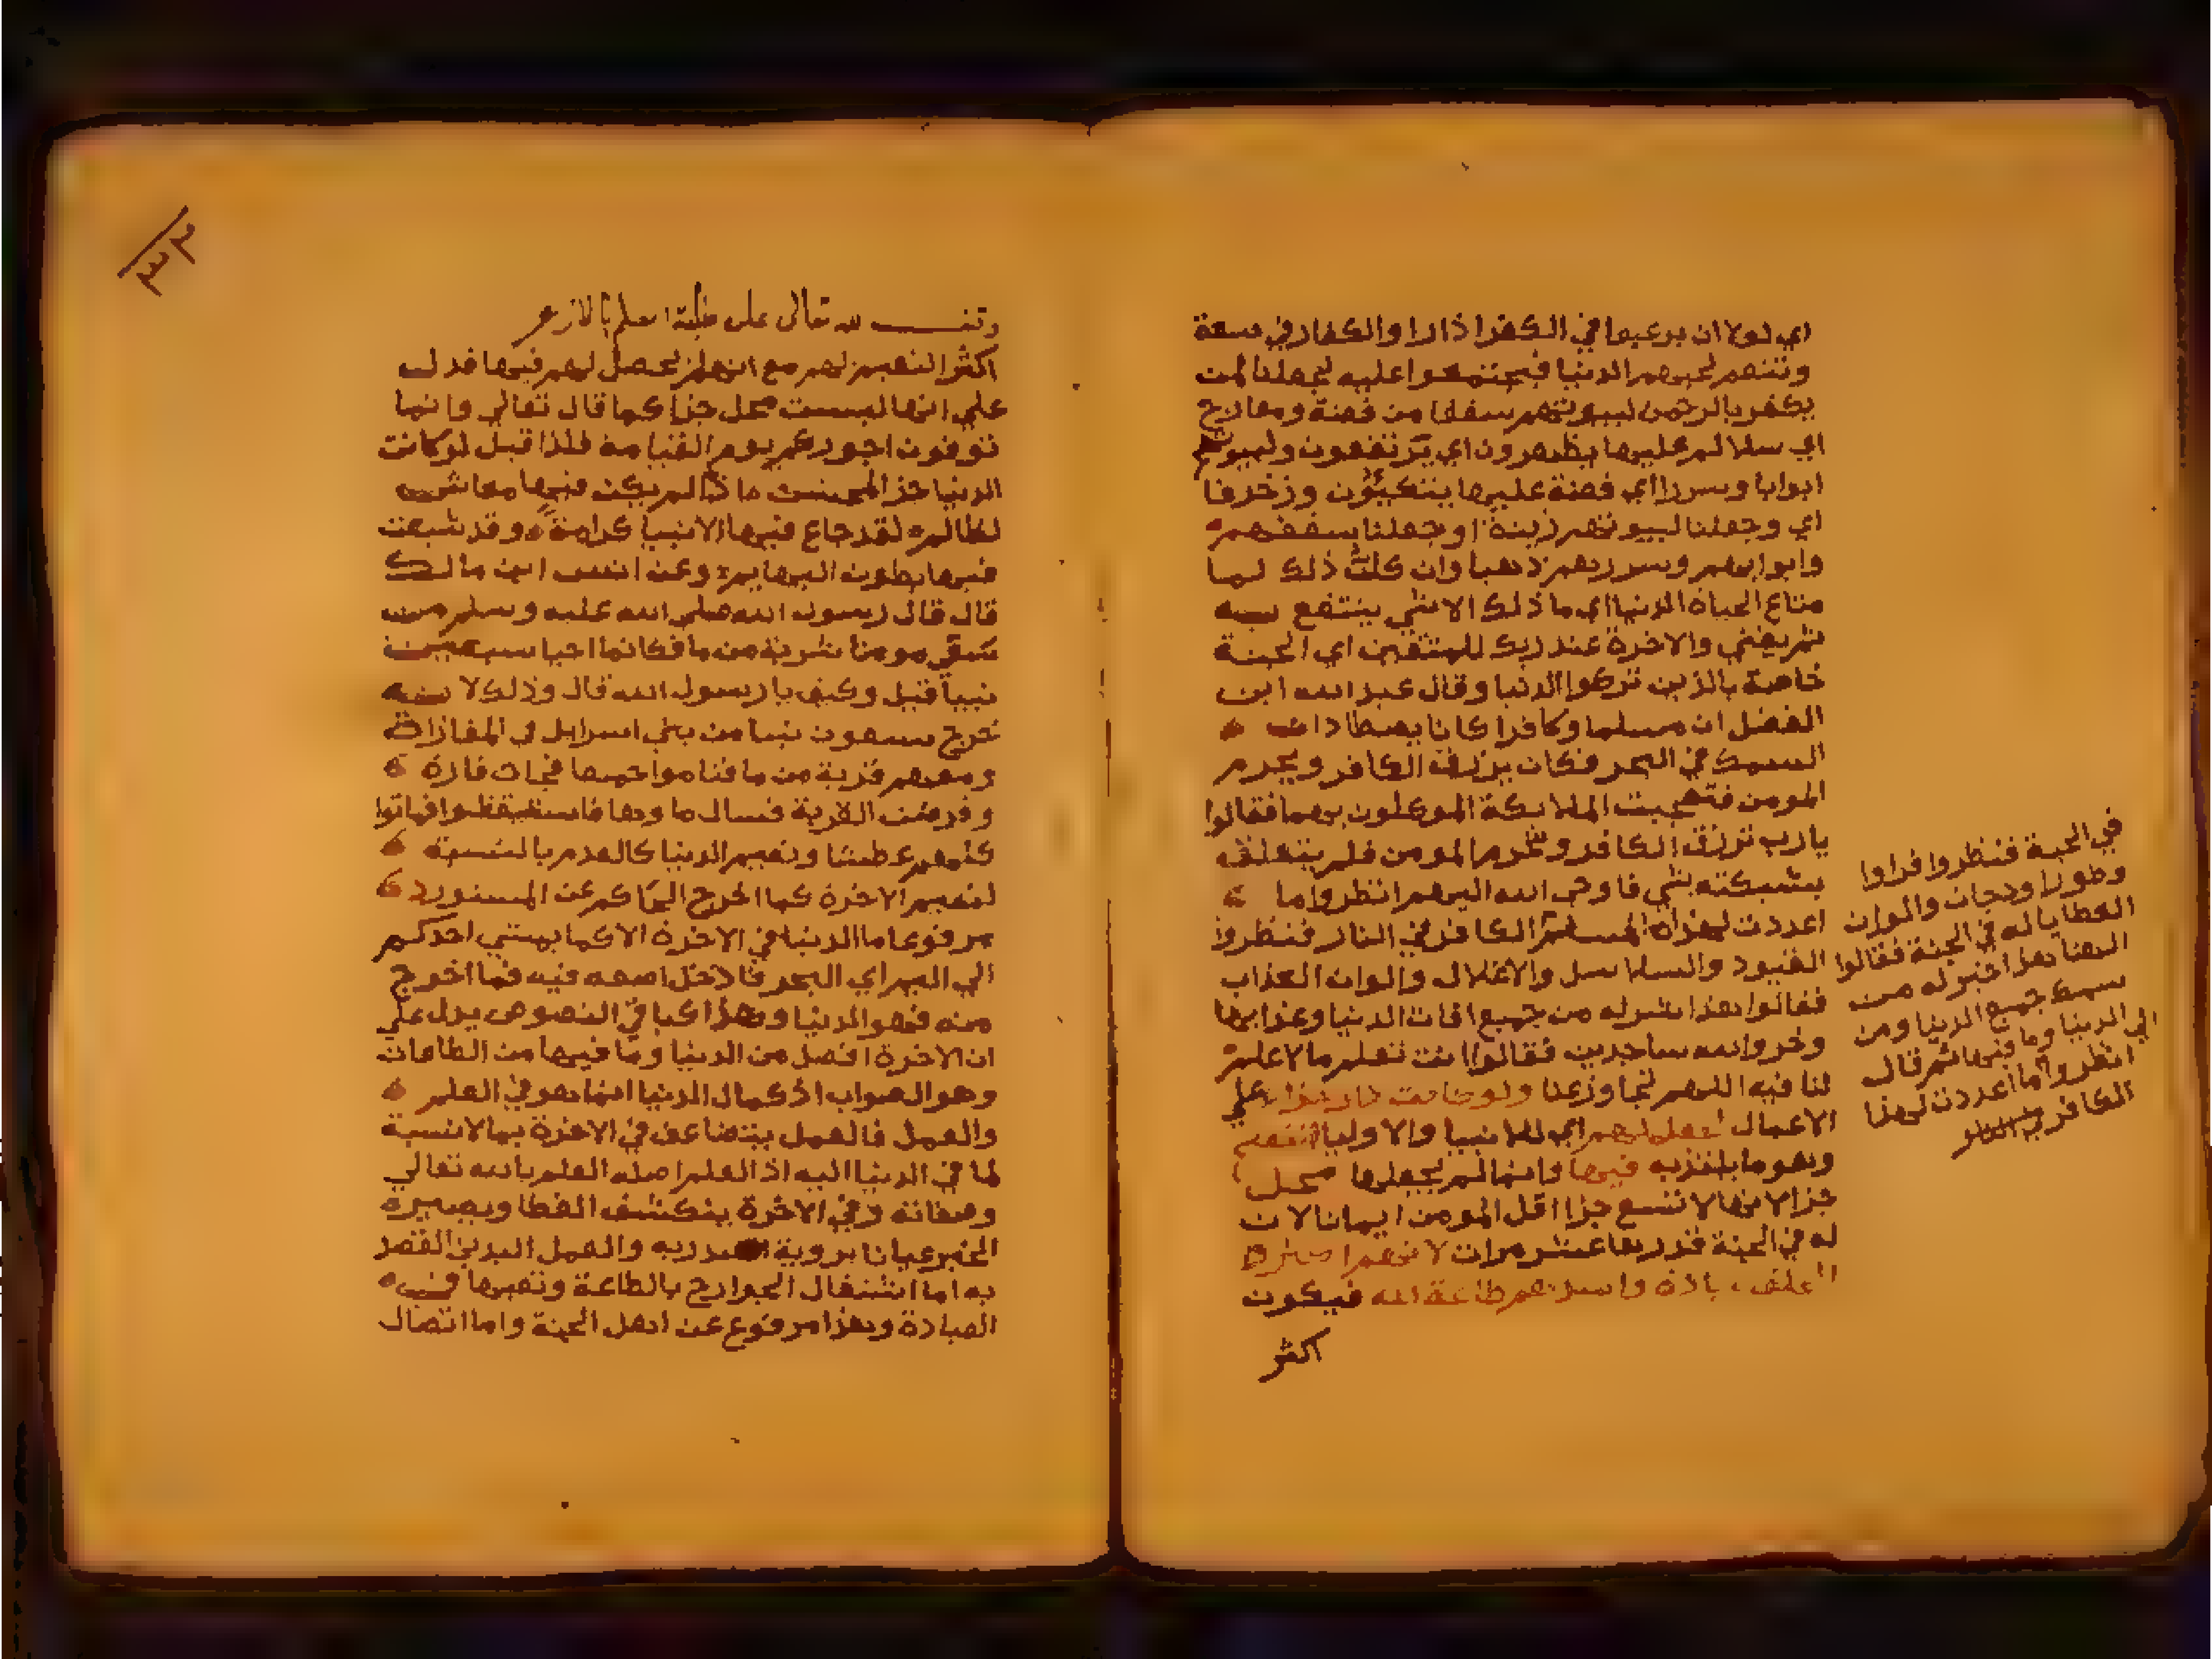 اي لولا ان يرغبوا في الكفر اذا راوا الكفار في سعة
وتنعم لحبهم الدنيا فيجتمعوا عليه لجعلنا لمن
يكفر بالرحمن لبيوتهم سقفا من فضة ومعارج
اي سلالم عليها يظهرون اي يرتفعون ولبيوتهم
ابوابا وسررا اي فضة عليها يتكيئون وزخرفا
اي وجعلنا لبيوتهم زينة او جعلنا سقفهم
وابوابهم وسررهم ذهبا وان كل ذلك لما
متاع الحياة الدنيا اي ما ذلك الا شي ينتفع به
ثم يفني والاخرة عند ربك للمتقين اي الجنة
خاصة بالذين تركوا الدنيا وقال عبد الله ابن
الفضل ان مسلما وكافرا كانا يصطادان
السمك في البحر فكان يرزق الكافر ويحرم
المومن فتعجبت الملايكة الموكلون بهما فقالوا
يا رب ترزق الكافر وتحرم المومن فلم يتعلق
بشبكته شي فاوحى الله اليهم انظروا ما
اعددت لهذا الكافر في النار فنظروا
القيود والسلاسل والاغلال والوان العذاب
فقالوا هذا شر له من جميع افات الدنيا وعذابها
وخروا لله ساجدين فقالوا انت تعلم ما لا علم
لنا فيه اللهم تجاوز عنا ولو كانت دار جزا علي
الاعمال لجعل لهم اي للانبيا والاوليا النعم
وهو ما يلتذ به فيها وانما لم يجعلها محل
جزا لانها لا تسع جزا اقل المومن ايمانا لان
له في الجنة قدرها عشر مرات
طاعة الله فيكون
اكثر
في الجنة فنظروا فراوا
وحورا وجنات والوان
العطايا له في الجنة فقالوا
الهنا هذا خير له من
سمك جميع الدنيا ومن
الدنيا وما فيها ثم قال
انظروا ما اعددت لهذا
الكافر في النار
وقف لله تعالى على طلبة العلم بالازهر
اكثر النعيم لهم مع انه لم يحصل لهم فيها فدل
علي انها ليست محل جزا كما قال تعالي وانما
توفون اجوركم يوم القيامة فلذا قيل لو كانت
الدنيا جزا لمحسن اذا لم يكن فيها معاش
لظالم لقد جاع فيها الانبيا كرامة وقد شبعت
فيها بطون البهايم وعن انس ابن مالك
قال قال رسول الله صلي الله عليه وسلم من
سقي مومنا شربة من ما فكانما احيا سبعين
نبيا قيل وكيف يا رسول الله قال وذلك لانه
خرج سبعون نبيا من بني اسرايل في المفازاة
ومعهم قربة من ما فناموا جميعا فجات فارة
وقرضت القربة فسال ماوها فاستيقظوا فماتوا
كلهم عطشا ونعيم الدنيا كالعدم بالنسبة
لنعيم الاخرة كما اخرج الحاكم عن المستورد
مرفوعا ما الدنيا في الاخرة الا كما يمشي احدكم
الي اليم اي البحر فادخل اصبعه فيه فما اخرج
منه فهو الدنيا وهذا كباقي النصوص يدل علي
ان الاخرة افضل من الدنيا وما فيها من الطاعات
وهو الصواب اذ كمال الدنيا انما هو في العلم
والعمل فالعمل يتضاعف في الاخرة بما لا نسبة
لما في الدنيا اليه اذ العلم اصله العلم بالله تعالي
وصفاته وفي الاخرة ينكشف الغطا ويصير
الخبر عيانا بروية العبد ربه والعمل البدني القصد
به اما اشتغال الجوارح بالطاعة وتعبها في
العبادة وهذا مرفوع عن اهل الجنة واما اتصال